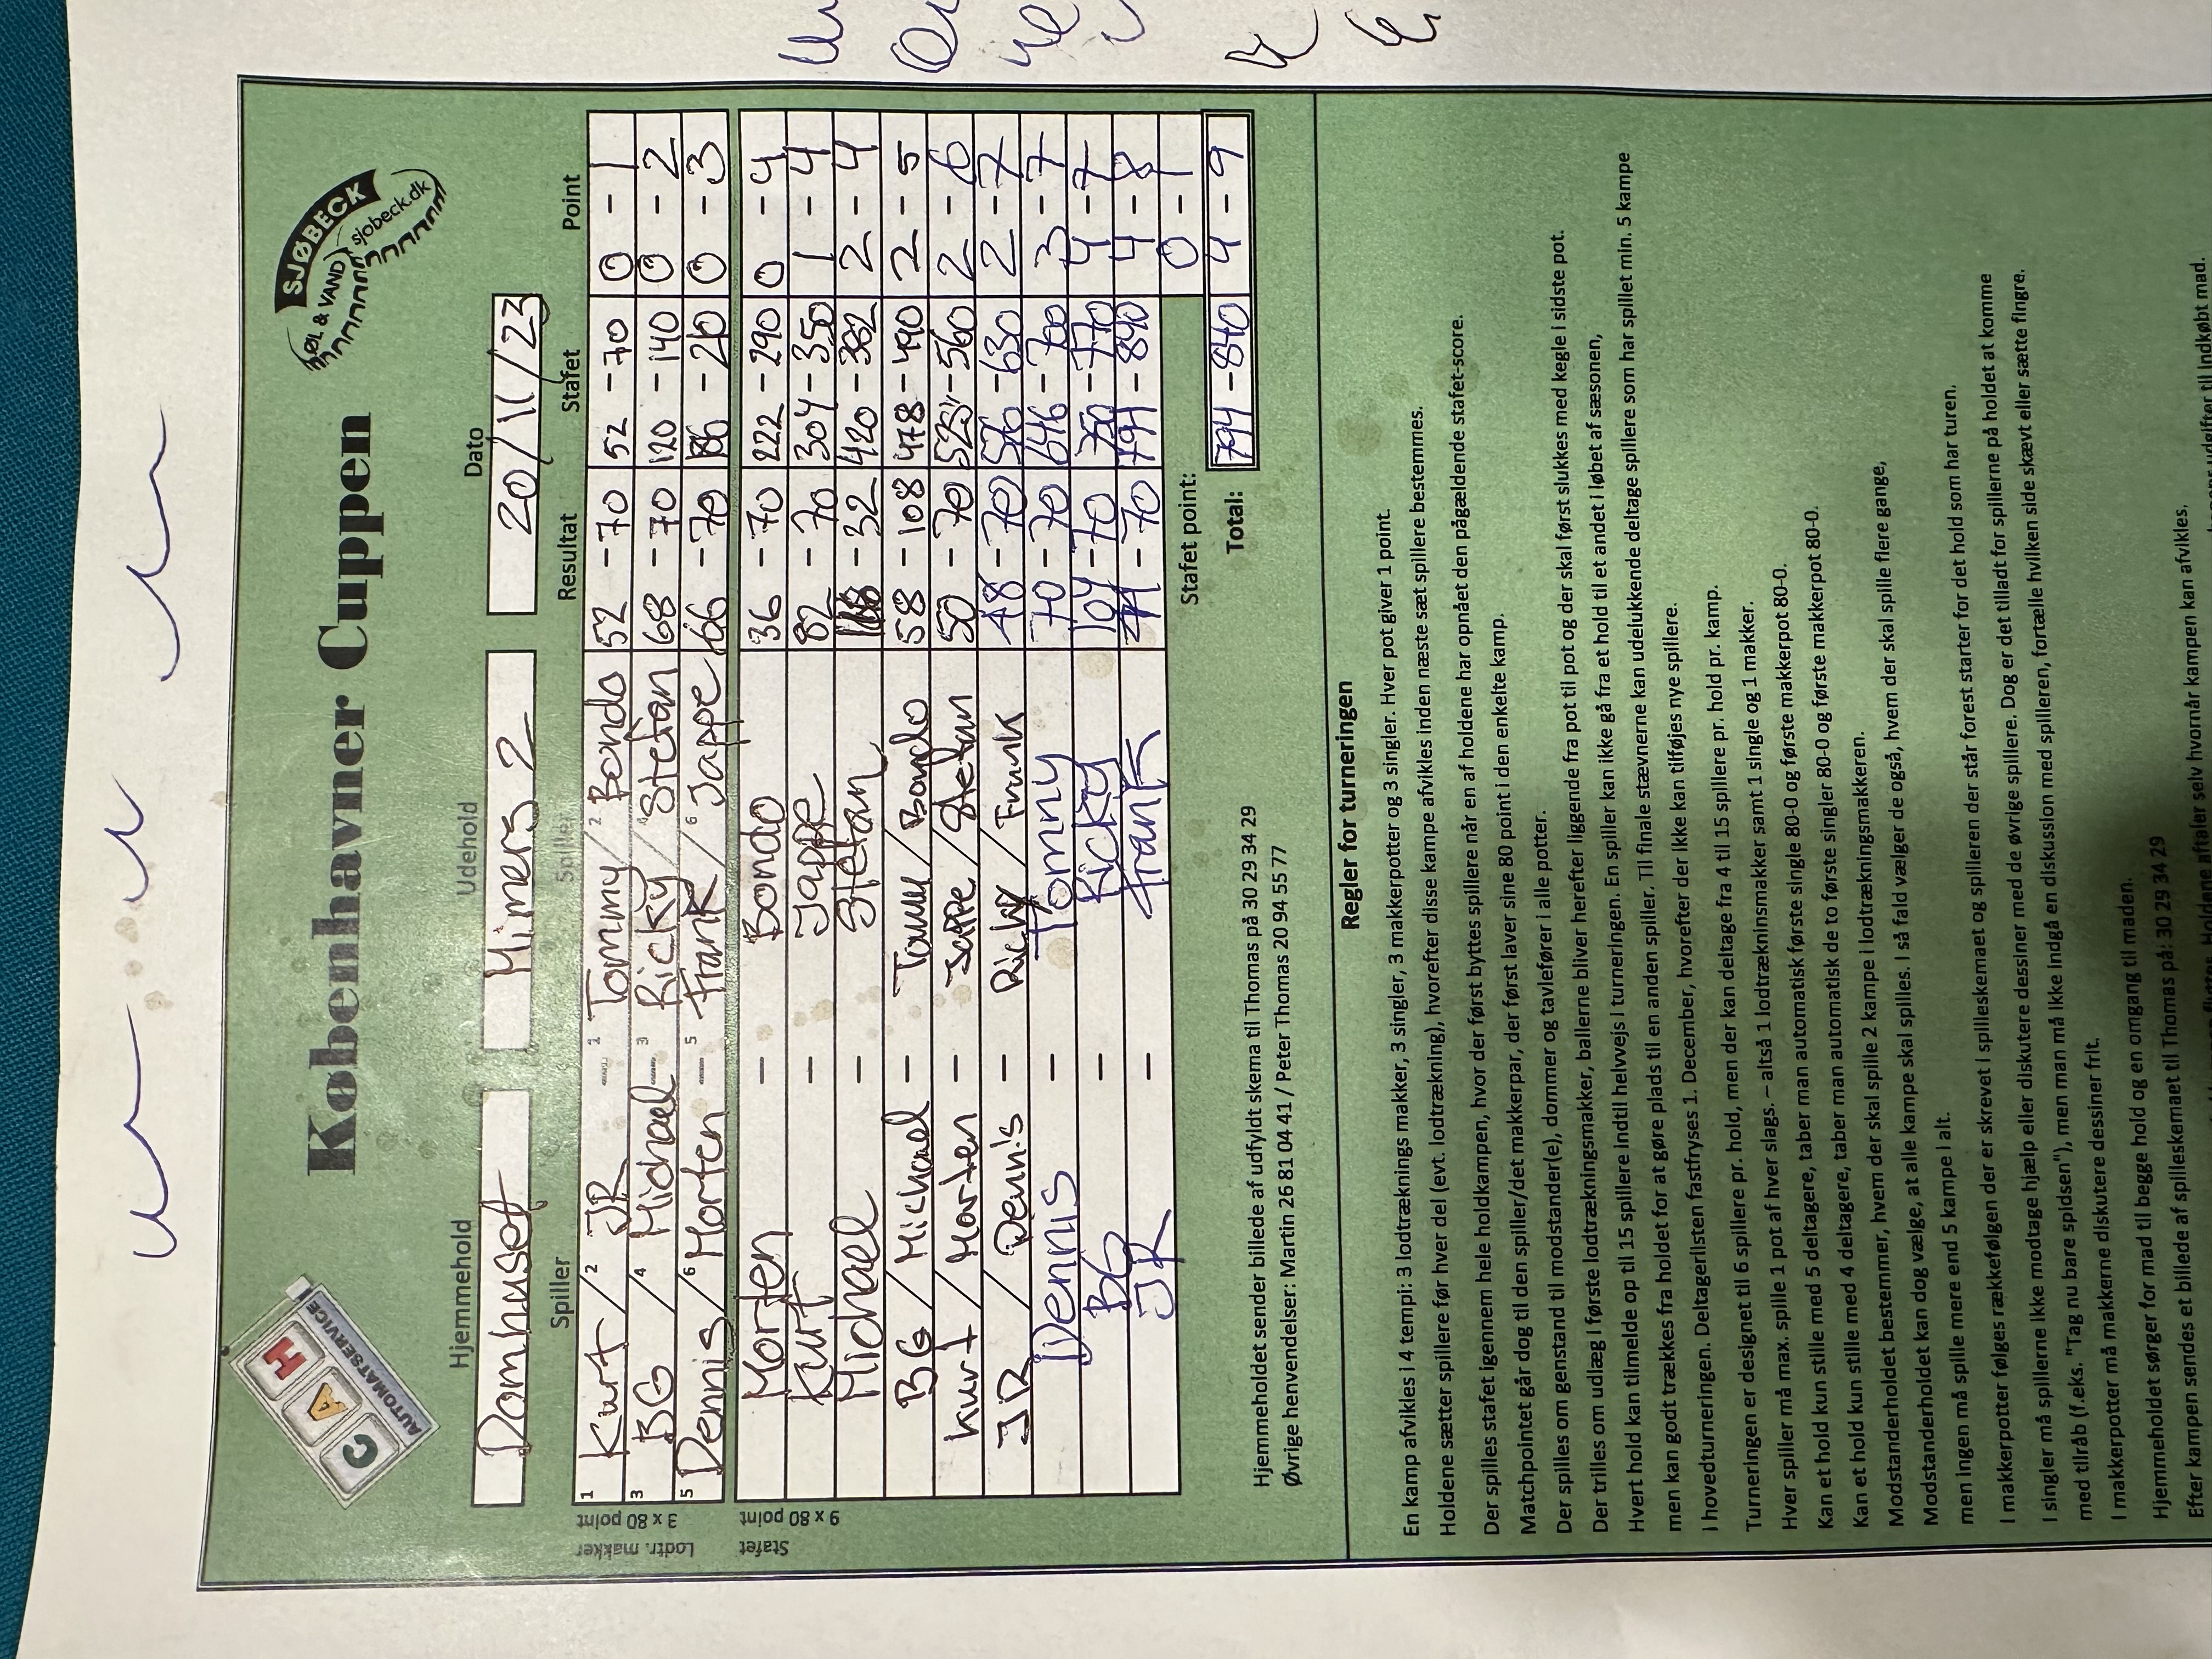 Københavner Cuppen
C A H
AUTOMATSERVICE
SJØBECK
ØL & VAND
sjobeck.dk
Hjemmehold Udehold Dato
Damhuset Mimers 2 20/11/23
Spiller Spiller Resultat Stafet Point
Lodtr. makker
3 x 80 point
1 Kurt / 2 JR - 1 Tommy / 2 Bondo 52 - 70 52 - 70 0 - 1
3 BG / 4 Michael - 3 Ricky / 4 Stefan 68 - 70 120 - 140 0 - 2
5 Dennis / 6 Morten - 5 Frank / 6 Jappe 66 - 70 - 210 0 - 3
Stafet
9 x 80 point
Morten - Bondo 36 - 70 222 - 290 0 - 4
Kurt - Jappe 82 - 70 304 - 350 1 - 4
Michael - Stefan - 32 420 - 382 2 - 4
BG / Michael - Tommy / Bondo 58 - 108 478 - 490 2 - 5
Kurt / Morten - Jappe / Stefan 50 - 70 - 560 2 - 6
JR / Dennis - Ricky / Frank 48 - 70 576 - 630 2 - 7
Dennis - Tommy 70 - 70 646 - 700 3 - 7
BG - Ricky 104 - 70 750 - 770 4 - 7
JR - Frank - 70 - 840 4 - 8
Stafet point: 0 - 1
Total: 794 - 840 4 - 9
Hjemmeholdet sender billede af udfyldt skema til Thomas på 30 29 34 29
Øvrige henvendelser: Martin 26 81 04 41 / Peter Thomas 20 94 55 77
Regler for turneringen
En kamp afvikles i 4 tempi: 3 lodtræknings makker, 3 singler, 3 makkerpotter og 3 singler. Hver pot giver 1 point.
Holdene sætter spillere før hver del (evt. lodtrækning), hvorefter disse kampe afvikles inden næste sæt spillere bestemmes.
Der spilles stafet igennem hele holdkampen, hvor der først byttes spillere når en af holdene har opnået den pågældende stafet-score.
Matchpointet går dog til den spiller/det makkerpar, der først laver sine 80 point i den enkelte kamp.
Der spilles om genstand til modstander(e), dommer og tavlefører i alle potter.
Der trilles om udlæg i første lodtrækningsmakker, ballerne bliver herefter liggende fra pot til pot og der skal først slukkes med kegle i sidste pot.
Hvert hold kan tilmelde op til 15 spillere indtil helvvejs i turneringen. En spiller kan ikke gå fra et hold til et andet i løbet af sæsonen,
men kan godt trækkes fra holdet for at gøre plads til en anden spiller. Til finale stævnerne kan udelukkende deltage spillere som har spillet min. 5 kampe
i hovedturneringen. Deltagerlisten fastfryses 1. December, hvorefter der ikke kan tilføjes nye spillere.
Turneringen er designet til 6 spillere pr. hold, men der kan deltage fra 4 til 15 spillere pr. hold pr. kamp.
Hver spiller må max. spille 1 pot af hver slags. – altså 1 lodtrækninsmakker samt 1 single og 1 makker.
Kan et hold kun stille med 5 deltagere, taber man automatisk første single 80-0 og første makkerpot 80-0.
Kan et hold kun stille med 4 deltagere, taber man automatisk de to første singler 80-0 og første makkerpot 80-0.
Modstanderholdet bestemmer, hvem der skal spille 2 kampe i lodtrækningsmakkeren.
Modstanderholdet kan dog vælge, at alle kampe skal spilles. I så fald vælger de også, hvem der skal spille flere gange,
men ingen må spille mere end 5 kampe i alt.
I makkerpotter følges rækkefølgen der er skrevet i spilleskemaet og spilleren der står forest starter for det hold som har turen.
I singler må spillerne ikke modtage hjælp eller diskutere dessiner med de øvrige spillere. Dog er det tilladt for spillerne på holdet at komme
med tilråb (f.eks. "Tag nu bare spidsen"), men man må ikke indgå en diskussion med spilleren, fortælle hvilken side skævt eller sætte fingre.
I makkerpotter må makkerne diskutere dessiner frit.
Hjemmeholdet sørger for mad til begge hold og en omgang til maden.
Efter kampen sendes et billede af spilleskemaet til Thomas på: 30 29 34 29
Holdene aftaler selv hvornår kampen kan afvikles.
udgifter til indkøbt mad.